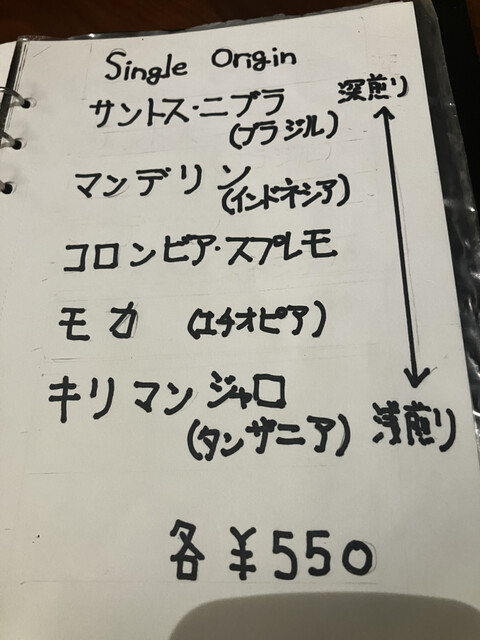 Single Origin
サントス・ニブラ
深煎り
(ブラジル)
マンデリン
(インドネシア)
コロンビア・スプレモ
モカ (エチオピア)
キリマンジャロ
(タンザニア)
浅煎り
各 ¥550